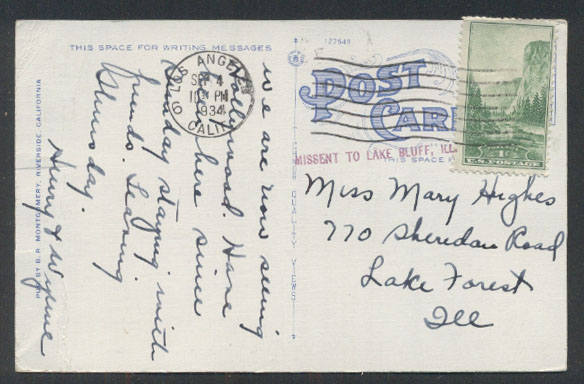 THIS SPACE FOR WRITING MESSAGES
127549
POST CARD
THIS SPACE
LOS ANGELES
SEP 4
10 PM
1934
CALIF.
MISSENT TO LAKE BLUFF, ILL.
U.S. POSTAGE
QUALITY VIEWS
PUB BY B. R. MONTGOMERY, RIVERSIDE, CALIFORNIA
we are now seeing
Hollywood. Have
been here since
Sunday staying with
friends. Leaving
Thursday.
Henry &
Miss Mary Hughes
770 Sheridan Road
Lake Forest
Ill